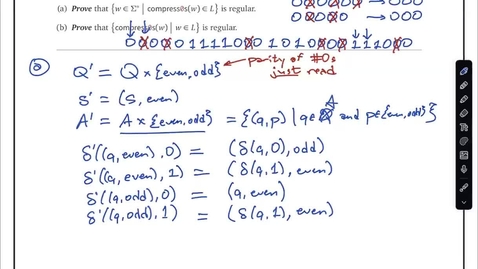 (a) Prove that {w ∈ Σ* | compressØs(w) ∈ L} is regular.
00000 → 000
000000 → 000
(b) Prove that {compressØs(w) | w ∈ L} is regular.
00000111100010100001100
ⓐ Q' = Q × {even, odd} parity of #0s just read
S' = (s, even)
A' = A × {even, odd} = {(q, p) | q ∈ A and p ∈ {even, odd}}
δ'((q, even), 0) = (δ(q, 0), odd)
δ'((q, even), 1) = (δ(q, 1), even)
δ'((q, odd), 0) = (q, even)
δ'((q, odd), 1) = (δ(q, 1), even)